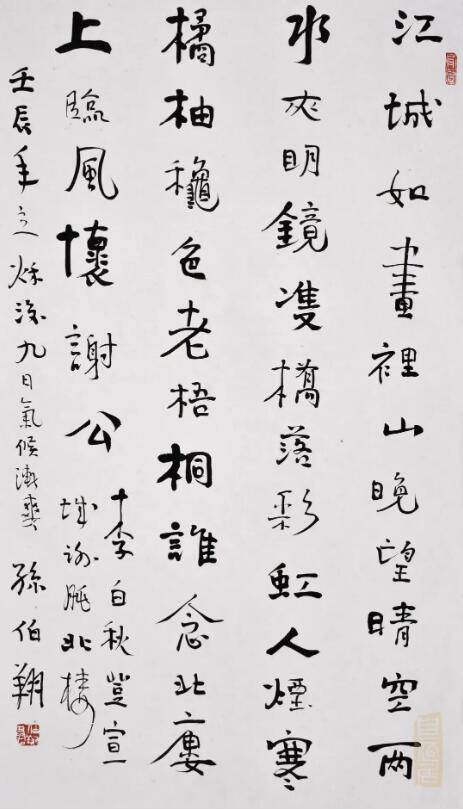 江城如畫裡山晚望晴空兩
水夾明鏡雙橋落彩虹人煙寒
橘柚穐色老梧桐誰念北樓
上臨風懷謝公
李白秋登宣
城謝朓北樓
壬辰年之秌深九日氣候漸爽 孫伯翔